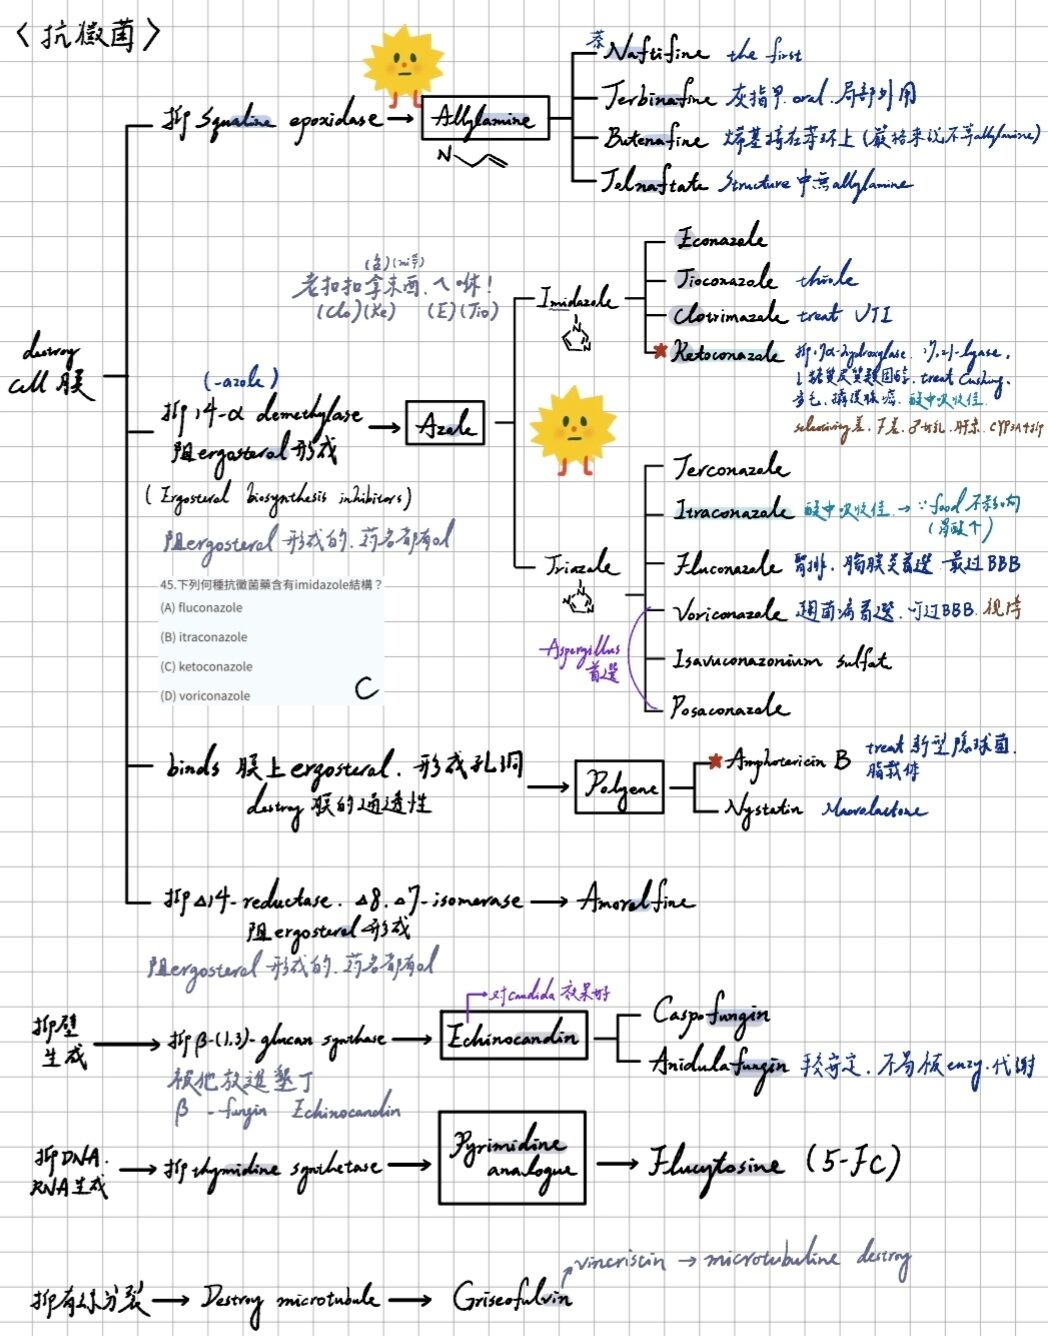 〈抗黴菌〉
抑 squaline epoxidase → Allylamine
N
萘 Naftifine the first
Terbinafine 灰指甲. oral. 局部外用
Butenafine 烯基接在苯環上 (嚴格來說不算allylamine)
Tolnaftate structure 中無 allylamine
destroy
cell 膜
老扣扣拿東西,ㄟ咻!
(Clo)(Ke) (E)(Tio)
(-azole)
抑 14-α demethylase → Azole
阻ergosterol 形成
(Ergosterol biosynthesis inhibitors)
阻ergosterol 形成的, 药名都有ol
Imidazole
N
N
Econazole
Tioconazole thiole
Clotrimazole treat UTI
★ Ketoconazole 抑17α-hydroxylase. 17,21-lyase,
↓糖質皮質類固醇. treat Cushing,
多毛. 攝護腺癌. 酸中吸收佳
selectivity差.
Triazole
N
N
N
Terconazole
Itraconazole 酸中吸收佳 → ∵food 不影响
(胃酸↑)
Fluconazole 腎排. 腦膜炎首選 最过BBB
Voriconazole 麴菌病首選. 可过BBB. 視障
Isavuconazonium sulfat
Posaconazole
Aspergillus
首選
45.下列何種抗黴菌藥含有imidazole結構？
(A) fluconazole
(B) itraconazole
(C) ketoconazole
(D) voriconazole
C
binds 膜上 ergosterol. 形成孔洞 → Polyene
destroy 膜的通透性
★ Amphotericin B treat 新型隱球菌.
脂載体
Nystatin Macrolactone
抑 Δ14-reductase. Δ8. Δ7-isomerase → Amorolfine
阻ergosterol 形成
阻ergosterol 形成的, 药名都有ol
对candida 效果好
抑壁
生成 → 抑 β-(1,3)-glucan synthase → Echinocandin
Caspofungin
Anidulafungin 較安定. 不易被enzy.代謝
被他放進墾丁
β -fungin Echinocandin
抑DNA.
RNA生成 → 抑 thymidine synthetase → Pyrimidine
analogue → Flucytosine (5-FC)
vincristin → microtubuline destroy
抑有絲分裂 → Destroy microtubule → Griseofulvin